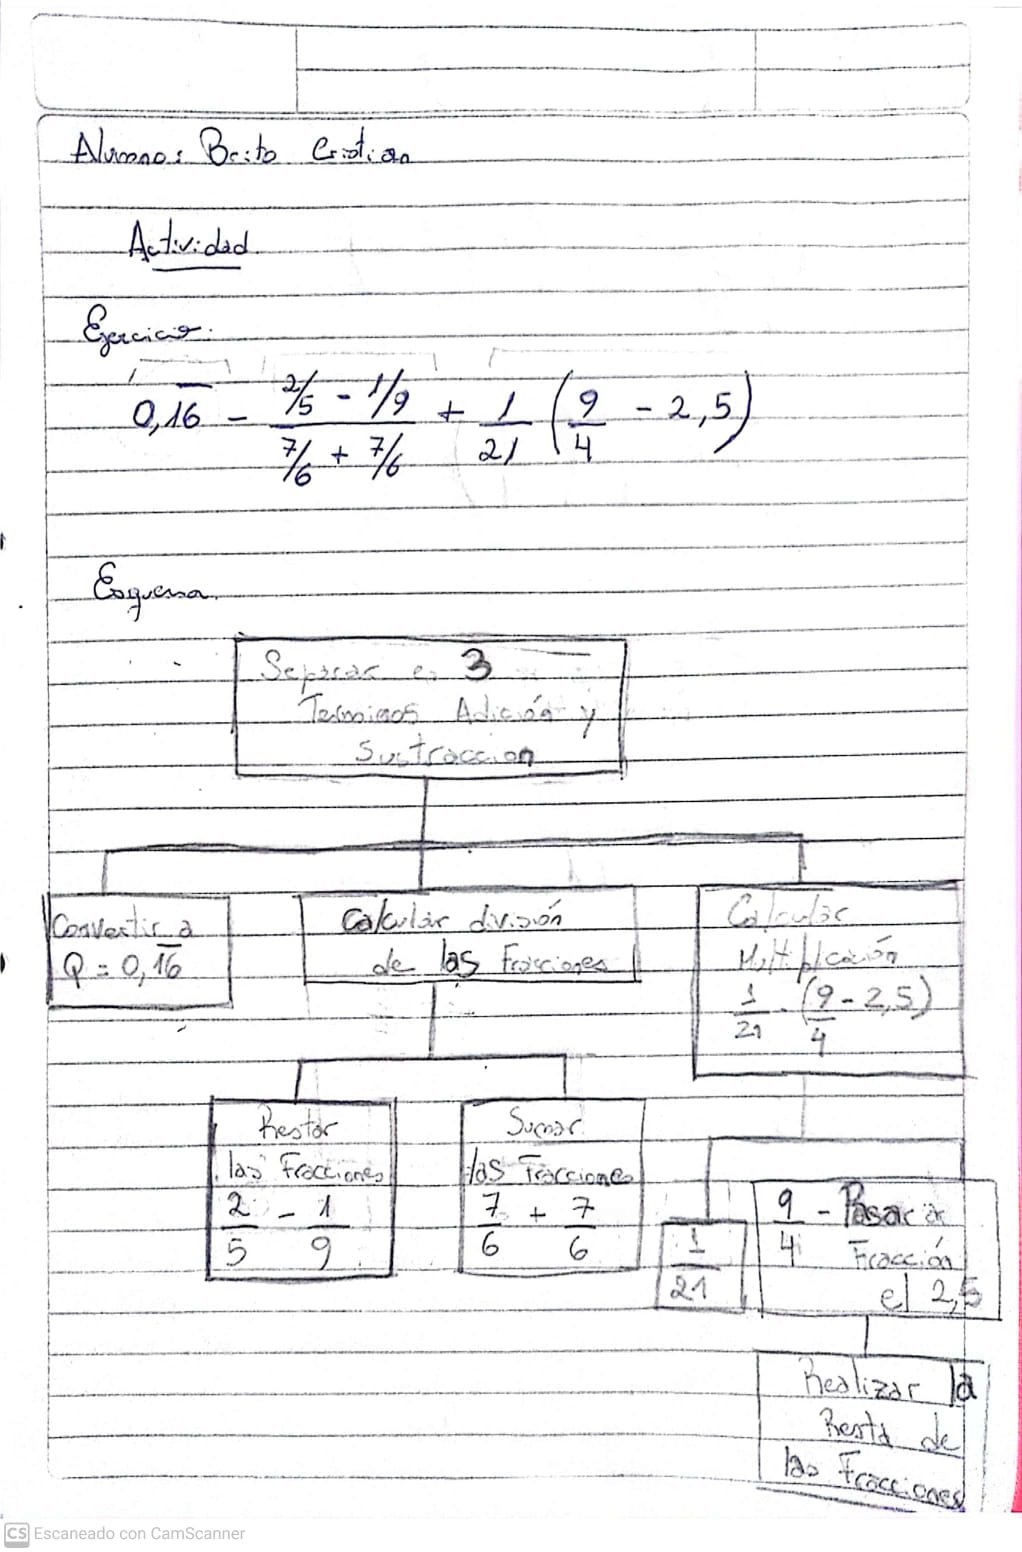 Alumno: Brito Cristian
Actividad.
Ejercicio:
0,1̅6̅ - (2/5 - 1/9)/(7/6 + 7/6) + 1/21 (9/4 - 2,5)
Esquema.
Separar en 3
Terminos Adición y
Sustraccion
Convertir a
Q = 0,1̅6̅
Calcular división
de las Fracciones
Calcular
Multiplicación
1/21 · (9/4 - 2,5)
Restar
las Fracciones
2/5 - 1/9
Sumar
las Fracciones
7/6 + 7/6
1/21
9/4 - Pasar a
Fracción
el 2,5
Realizar la
Resta de
las Fracciones
CS Escaneado con CamScanner